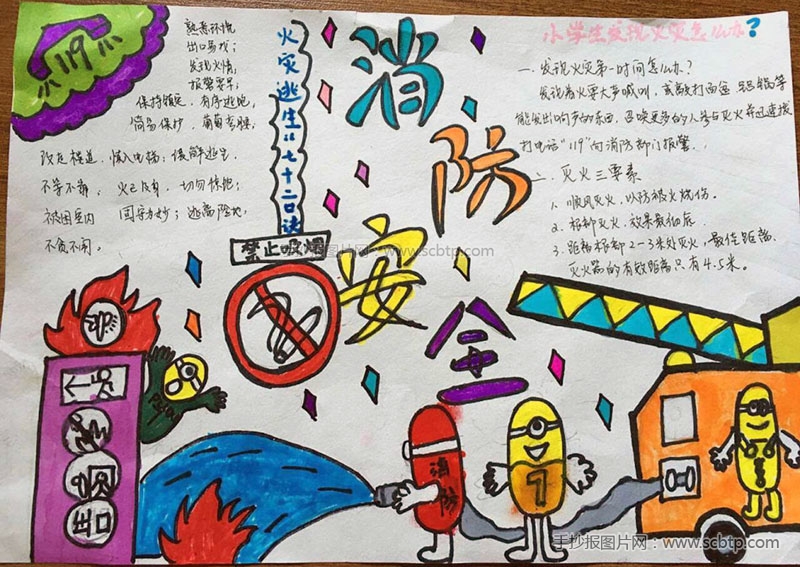 119
熟悉环境
出口易找；
发现火情
报警要早；
保持镇定，有序逃跑，
简易保护，匍匐
改走楼道，慎入电梯；缓降逃生，
不等不靠，火已及身，切勿惊跑；
被困室内，固守为妙；远离险地，
不贪不闹。
火灾逃生“七十二口诀
消防安全
小学生发现火灾怎么办？
一、发现火灾第一时间怎么办？
发现着火要大声喊叫，或敲打面盆、铝锅等
能发出响声的东西，召唤更多的人参与灭火并迅速拨
打电话“119”向消防部门报警。
二、灭火三要素
1、顺风灭火，以防被火烧伤。
2、根部灭火，效果最彻底。
3、距离根部2-3米处灭火，最佳距离，
灭火器的有效距离只有4.5米。
禁止吸烟
手抄报图片网：www.scbtp.com
出口
消防
手抄报图片网：www.scbtp.com